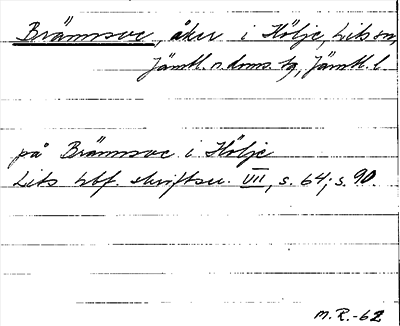 Brännsve, åker i Hölje, Lits sn,
Jämtl. n. doms. tg, Jämtl. l.
på Brännsve i Hölje
Lits hbf. skriftser. VII, s. 64; s. 90.
M.R.-62